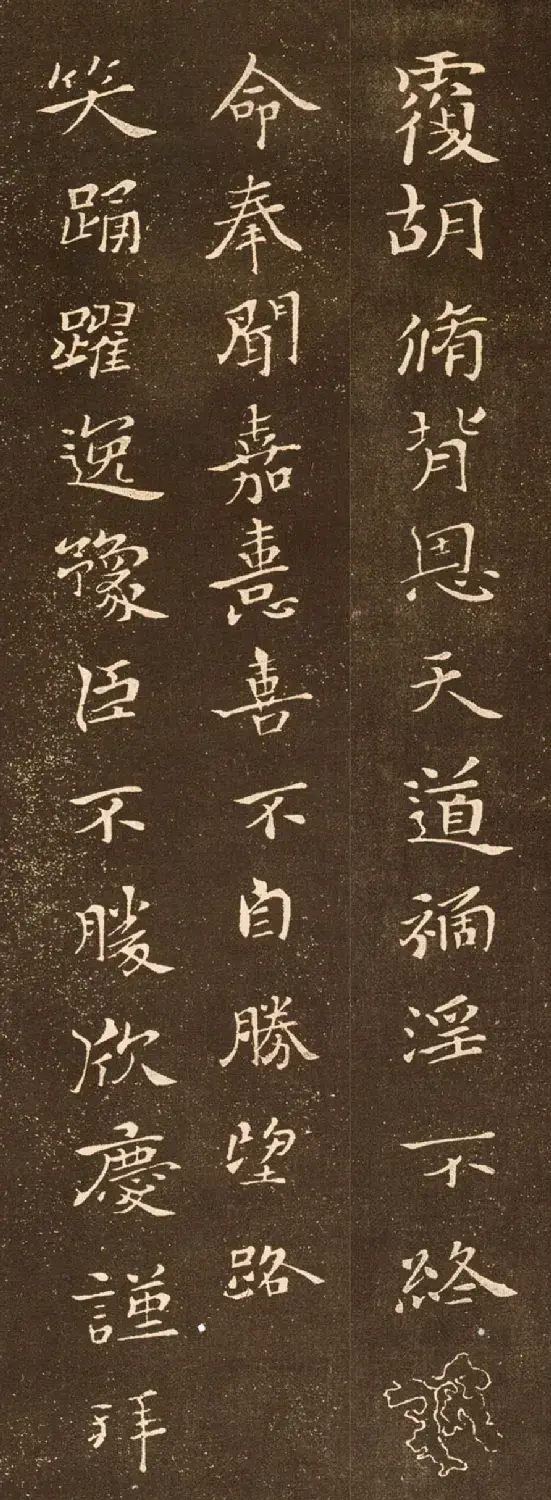 覆胡脩背恩天道禍淫不終
命奉聞嘉憙喜不自勝望路
笑踊躍逸豫臣不勝欣慶謹拜